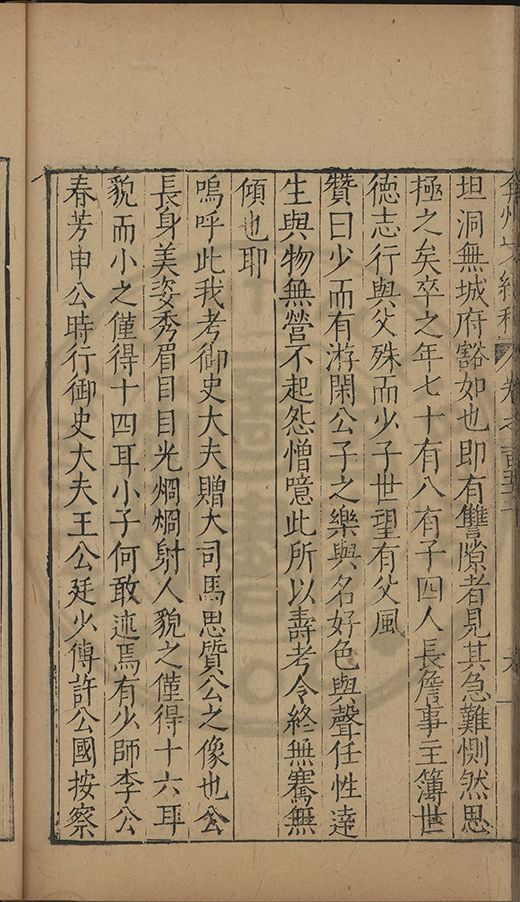 弇州山人續稿 卷之一百五十 六
坦洞無城府豁如也即有讐隙者見其急難惻然思
極之矣卒之年七十有八有子四人長詹事主簿世
德志行與父殊而少子世望有父風
贊曰少而有游閑公子之樂與名好色與聲任性達
生與物無營不起怨憎噫此所以壽考令終無騫無
傾也耶
嗚呼此我考御史大夫贈大司馬思質公之像也公
長身美姿秀眉目目光烱烱射人貌之僅得十六耳
貌而小之僅得十四耳小子何敢述焉有少師李公
春芳申公時行御史大夫王公廷少傅許公國按察